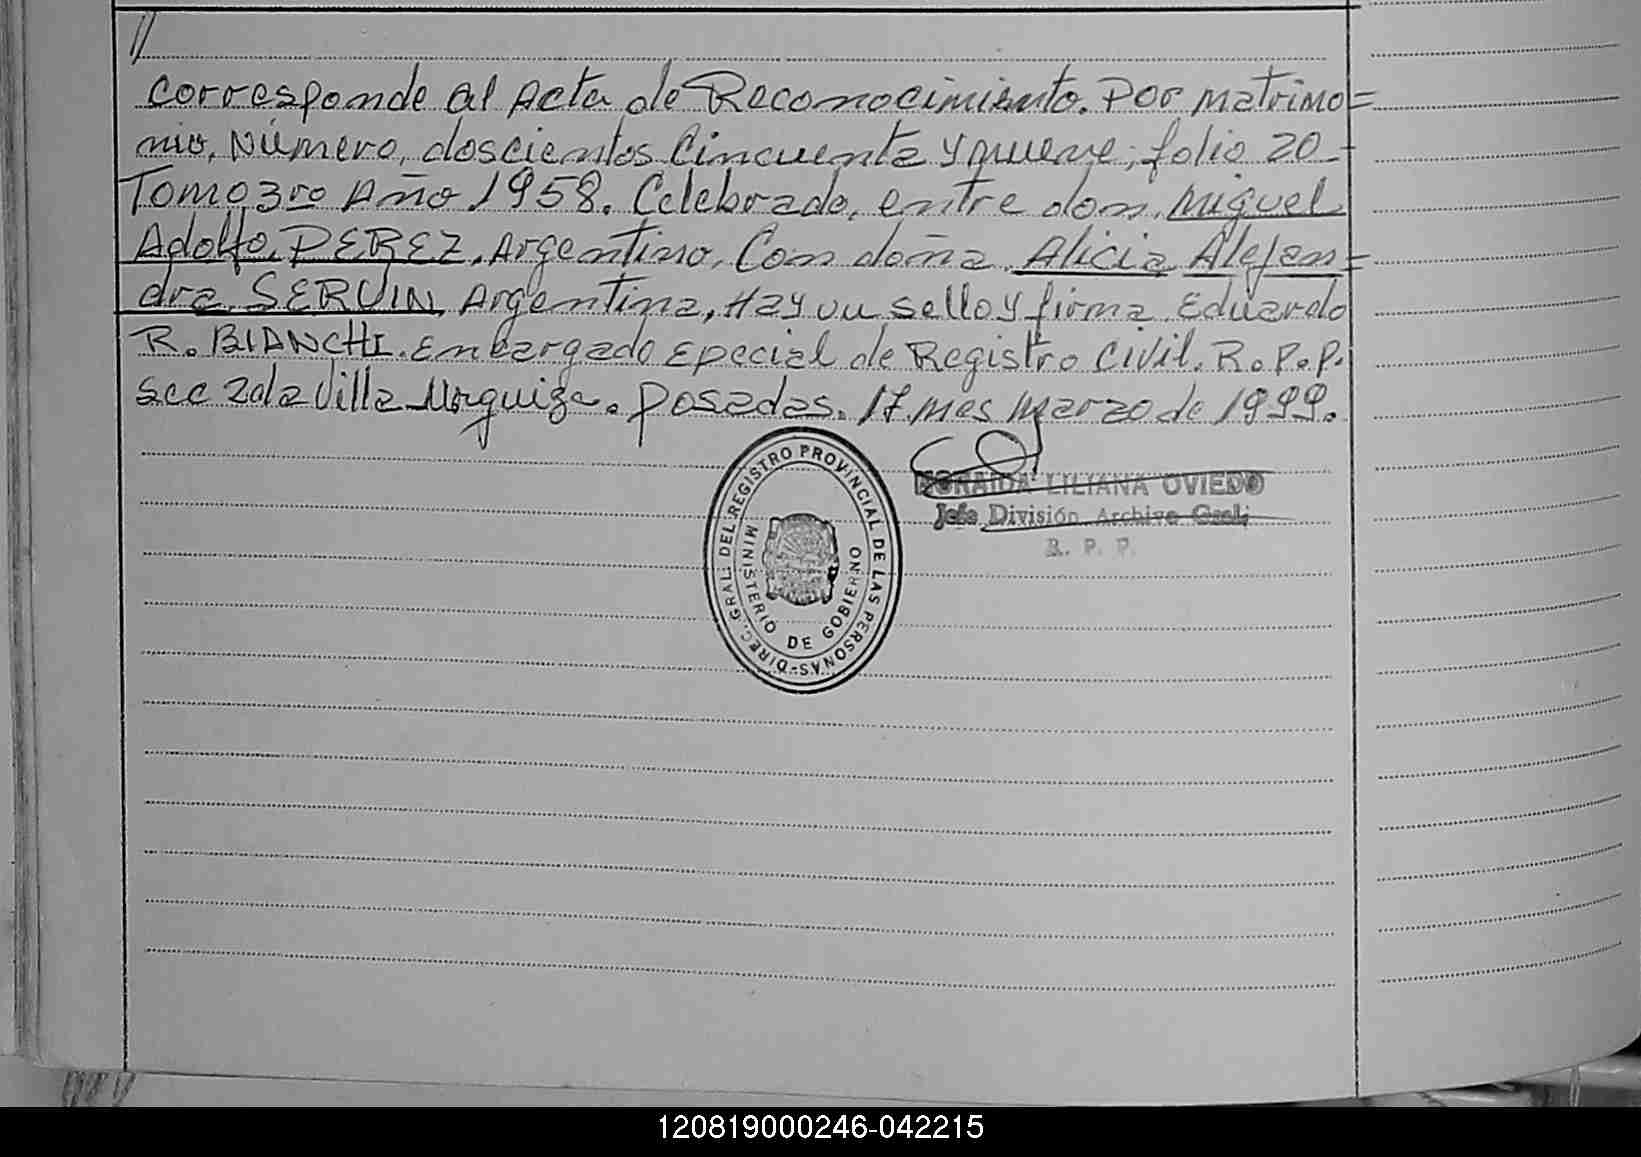 //
Corresponde al Acta de Reconocimiento. Por matrimo=
nio, Número, doscientos Cincuenta y nueve, folio 20-
Tomo 3ro Año 1958. Celebrado, entre don, Miguel
Adolfo, PEREZ, Argentino, Con doña, Alicia Alejan=
dra, SERVIN, Argentina, Hay un sello y firma Eduardo
R. BIANCHI. Encargado Epecial de Registro Civil. R.P.P.
Sec 2da Villa Urquiza. Posadas. 17 mes Marzo de 1999.
ZORAIDA LILIANA OVIEDO
Jefe División Archivo Gral;
R. P. P.
DIREC. GRAL. DEL REGISTRO PROVINCIAL DE LAS PERSONAS-
MINISTERIO DE GOBIERNO
120819000246-042215